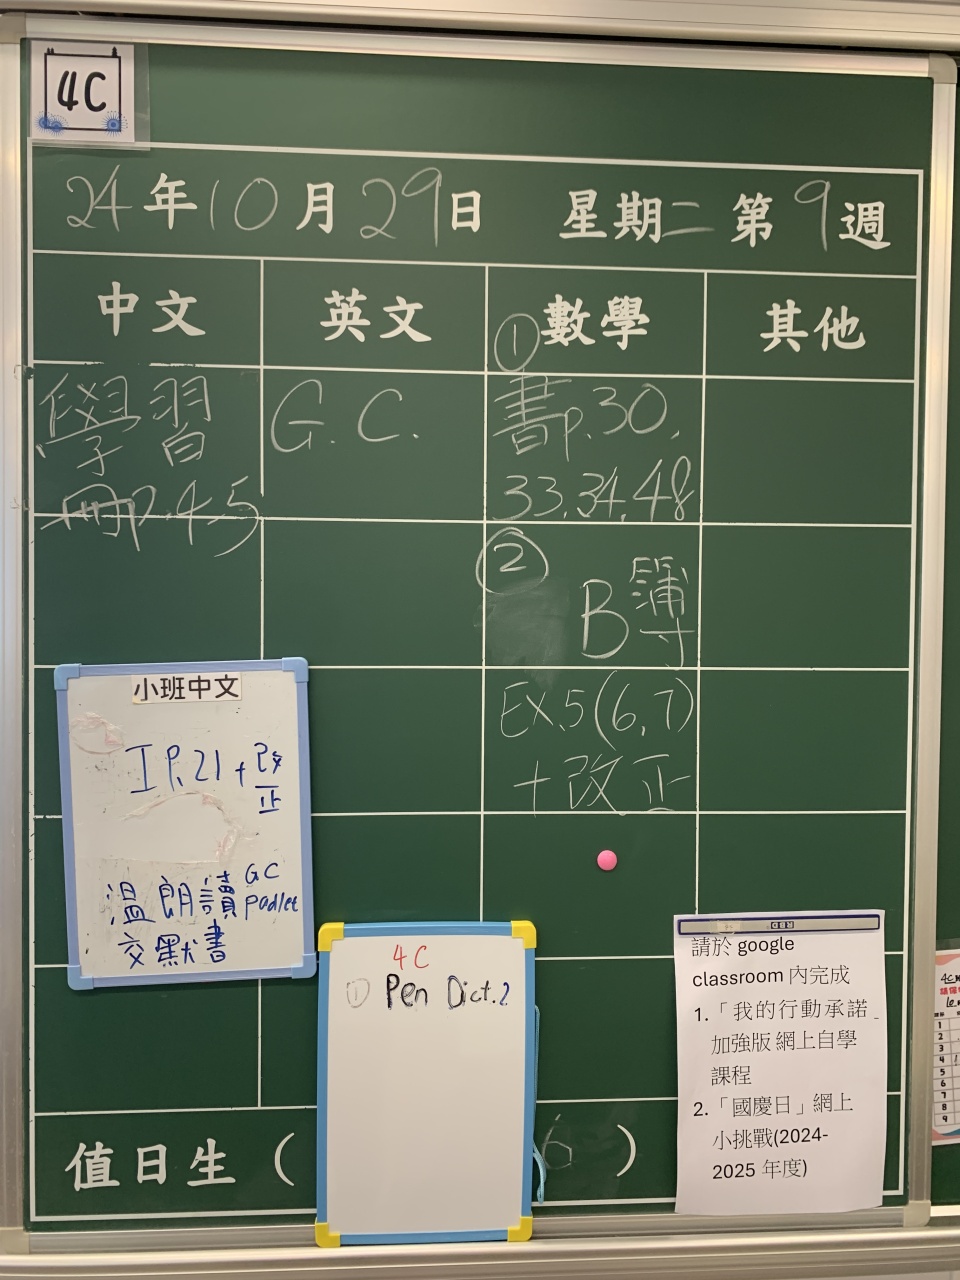 4C
24年10月29日 星期二 第9週
中文
英文
數學
其他
學習
冊p.4-5
G.C.
①
書p.30,
33,34,48
②
B簿
EX.5(6,7)
+改正
小班中文
工P.21+改正
溫朗讀 GC Padlet
交默書
4C
① Pen Dict.2
請於 google
classroom 內完成
1.「我的行動承諾」
加強版 網上自學
課程
2.「國慶日」網上
小挑戰(2024-
2025 年度)
值日生 ( 6 )
1
2
3
4
5
6
7
8
9